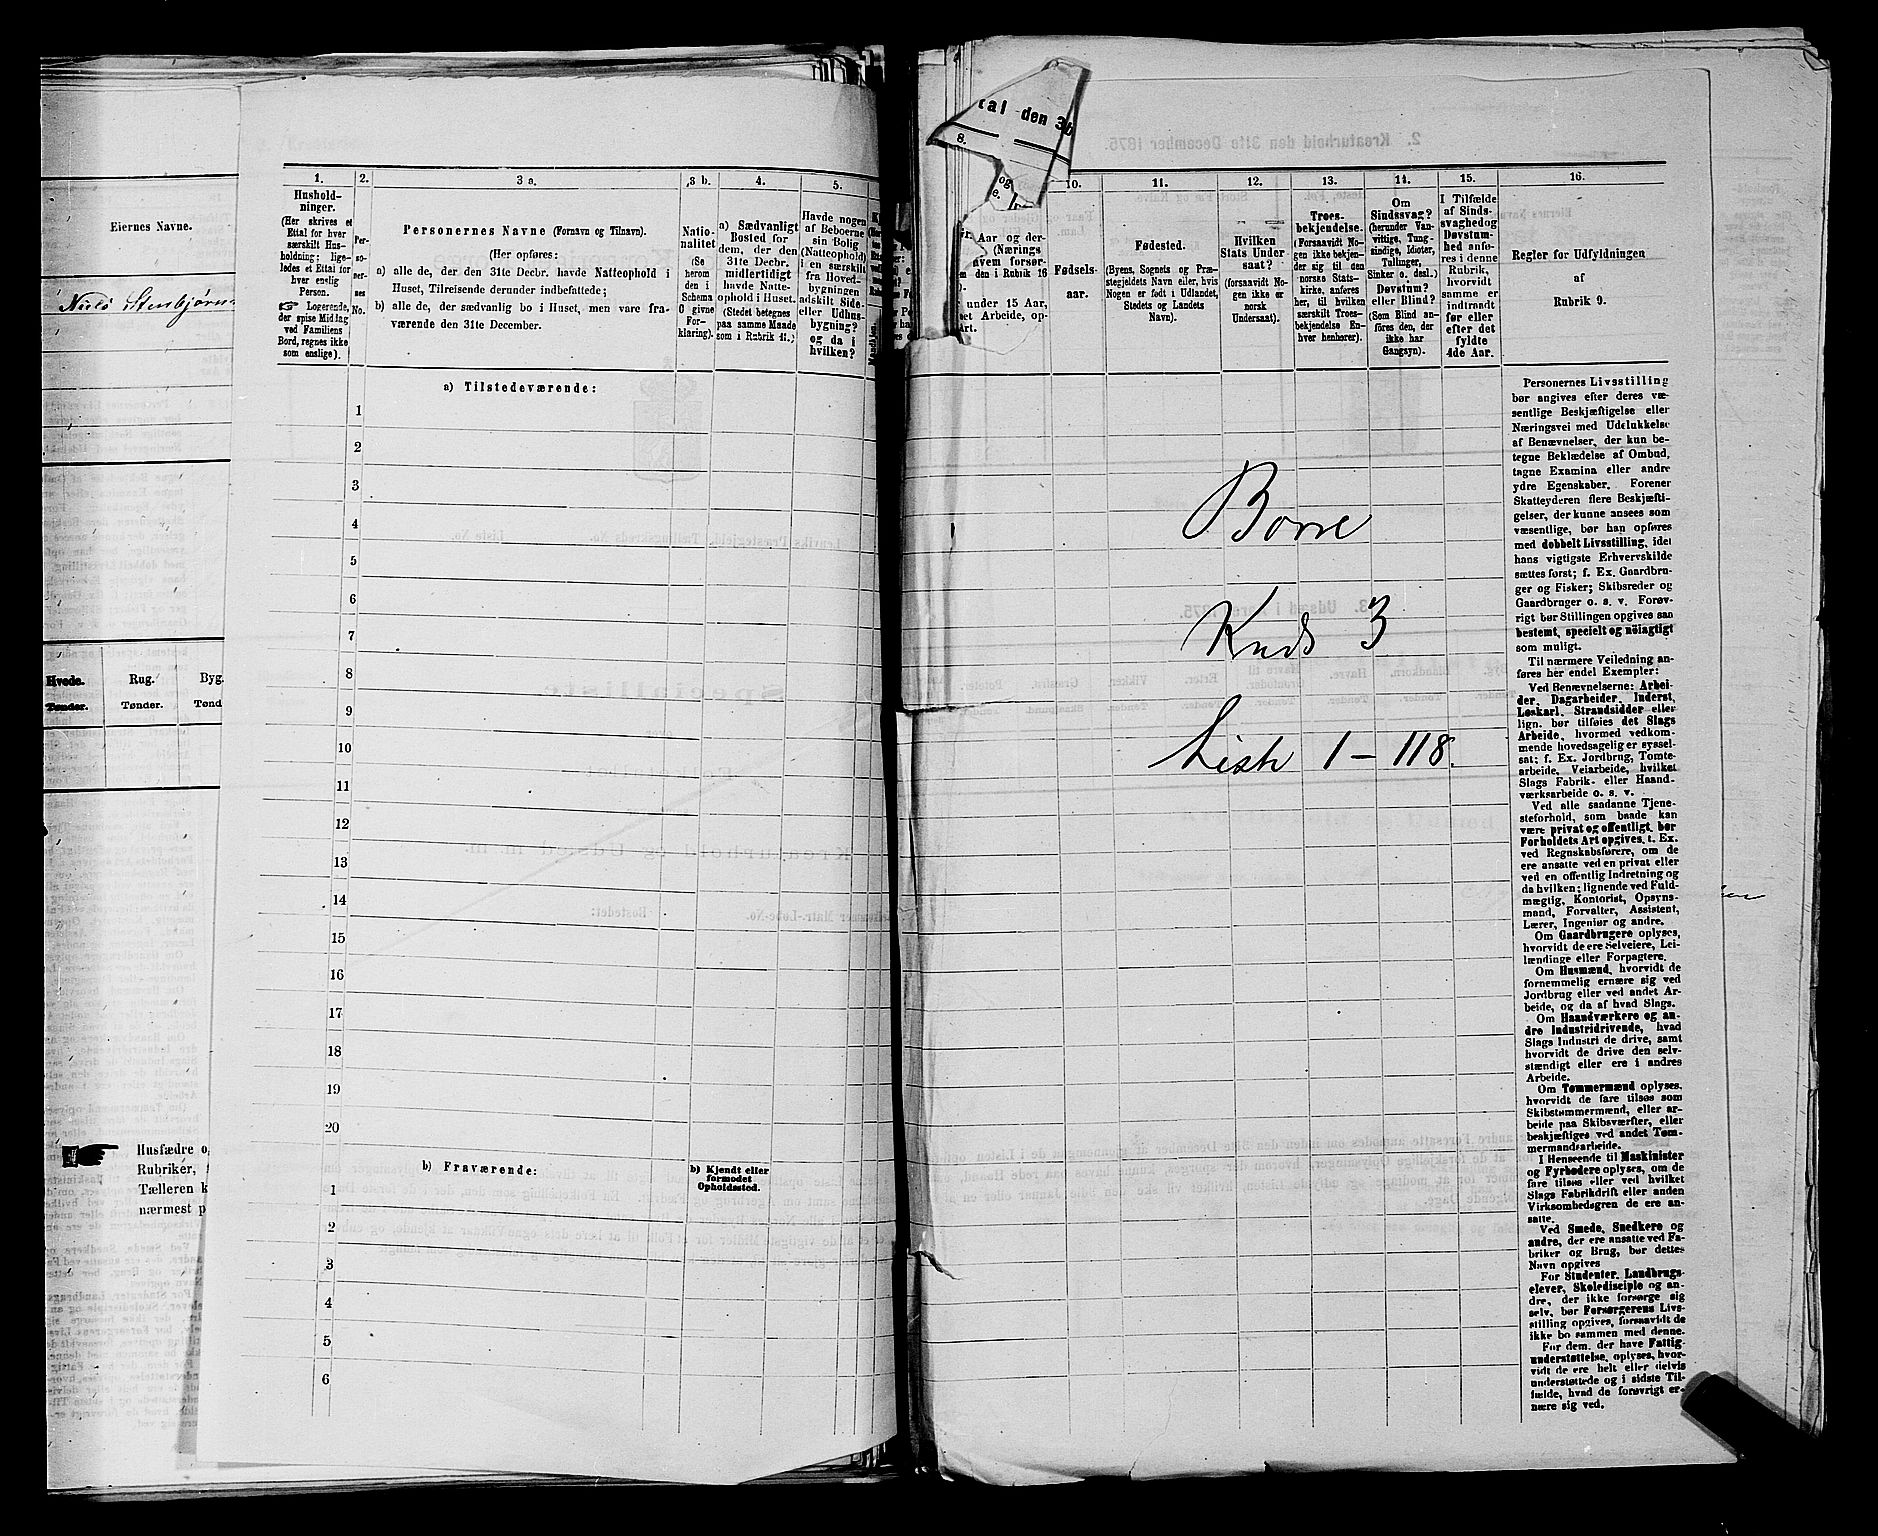 Eiernes Navne.
Niels Stenbjørn
Hvede.
Rug.
Byg.
Tønder.
Tønder.
Tønd
Husfædre o
Rubriker,
Tælleren k
nærmest p
1.
Hushold-
ninger.
(Her skrives et
Ettal for hver
særskilt Hus-
holdning; lige-
ledes et Ettal for
hver enslig
Person.
Logerende,
der spise Middag
ved Familiens
Bord, regnes ikke
som enslige).
2.
Per-
so-
ner-
nes
No.
3 a.
Personernes Navne (Fornavn og Tilnavn).
(Her opføres:
a) alle de, der den 31te Decbr. havde Natteophold i
Huset, Tilreisende derunder indbefattede;
b) alle de, der sædvanlig bo i Huset, men vare fra-
værende den 31te December.
3 b.
Natio-
nalitet
(Se
herom
den i
Schema
O givne
For-
klaring).
4.
a) Sædvanligt
Bosted for
dem, der den
31te Decbr.
midlertidigt
havde Natte-
ophold i Huset.
(Stedet betegnes
paa samme Maade
som i Rubrik 11.)
5.
Havde nogen
af Beboerne
sin Bolig
(Natteophold)
i en særskilt
fra Hoved-
bygningen
adskilt Side-
eller Udhus-
bygning?
og da i
hvilken?
a) Tilstedeværende:
1
2
3
4
5
6
7
8
9
10
11
12
13
14
15
16
17
18
19
20
b) Fraværende:
b) Kjendt eller
formodet
Opholdssted.
1
2
3
4
5
6
tal den 3
8.
og
Aar og der-
(Nærings
hvem forsør-
den i Rubrik 16
under 15 Aar,
et Arbeide, op-
Art.
10.
Fødsels-
aar.
11.
Fødested.
(Byens, Sognets og Præ-
stegjeldets Navn eller, hvis
Nogen er født i Udlandet,
Stedets og Landets
Navn).
12.
Hvilken
Stats Under
saat?
(forsaavidt No-
gen ikke er
norsk
Undersaat).
13.
Troes-
bekjendelse.
(Forsaavidt No-
gen ikke bekjen-
der sig til den
norske Stats-
kirke, anføres
her, til hvilken
særskilt Troes-
bekjendelse En-
hver henhører).
14.
Om
Sindssvag?
(herunder Van-
vittige, Tung-
sindige, Idioter,
Tullinger,
Sinker o. desl.)
Døvstum?
eller Blind?
(Som Blind an-
føres den, der
ikke har
Gangsyn).
15.
I Tilfælde
af Sinds-
svaghed og
Døvstum-
hed anfø-
res i denne
Rubrik,
hvorvidt
samme er
indtraadt
før eller
efter det
fyldte
4de Aar.
16.
Regler for Udfyldningen
af
Rubrik 9.
Borre
Kreds 3
Liste 1 – 118.
Personernes Livsstilling
bør angives efter deres væ-
sentlige Beskjæftigelse eller
Næringsvei med Udelukkelse
af Benævnelser, der kun be-
tegne Beklædelse af Ombud,
tagne Examina eller andre
ydre Egenskaber. Forener
Skatteyderen flere Beskjæfti-
gelser, der kunne ansees som
væsentlige, bør han opføres
med dobbelt Livsstilling, idet
hans vigtigste Erhvervskilde
sættes først; f. Ex. Gaardbru-
ger og Fisker; Skibsreder og
Gaardbruger o. s. v. Forøv-
rigt bør Stillingen opgives saa
bestemt, specielt og nöiagtigt
som muligt.
Til nærmere Veiledning an-
føres her endel Exempler:
Ved Benævnelserne: Arbei-
der, Dagarbeider, Inderst,
Løskarl, Strandsidder eller
lign. bør tilføies det Slags
Arbeide, hvormed vedkom-
mende hovedsagelig er syssel-
sat; f. Ex. Jordbrug, Tomte-
arbeide, Veiarbeide, hvilket
Slags Fabrik- eller Haand-
værksarbeide o. s. v.
Ved alle saadanne Tjene-
steforhold, som baade kan
være privat og offentligt, bør
Forholdets Art opgives, f. Ex.
ved Regnskabsførere, om de
ere ansatte ved en privat eller
ved en offentlig Indretning og
da hvilken; lignende ved Fuld-
mægtig, Kontorist, Opsyns-
mand, Forvalter, Assistent,
Lærer, Ingeniør og andre.
Om Gaardbrugere oplyses,
hvorvidt de ere Selveiere, Lei-
lændinge eller Forpagtere.
Om Husmænd, hvorvidt de
fornemmelig ernære sig ved
Jordbrug eller ved andet Ar-
beide, og da af hvad Slags.
Om Haandværkere og an-
dre Industridrivende, hvad
Slags Industri de drive, samt
hvorvidt de drive den selv-
stændigt eller ere i andres
Arbeide.
Om Tømmermænd oplyses,
hvorvidt de fare tilsøs som
Skibstømmermænd, eller ar-
beide paa Skibsværfter, eller
beskjæftiges ved andet Tøm-
mermandsarbeide.
I Henseende til Maskinister
og Fyrbødere oplyses, om de
fare tilsøs eller ved hvilket
Slags Fabrikdrift eller anden
Virksombedsgren de ere an-
satte.
Ved Smede, Snedkere og
andre, der ere ansatte ved Fa-
briker og Brug, bør dettes
Navn opgives
For Studenter, Landbrugs-
elever, Skoledisciple og an-
dre, der ikke forsørge sig
selv, bør Forsørgerens Livs-
stilling opgives, forsaavidt de
ikke bo sammen med denne.
For dem, der have Fattig-
understøttelse, oplyses, hvor-
vidt de ere helt eller delvis
understøttede og i sidste Til-
fælde, hvad de forøvrigt er-
nære sig ved.